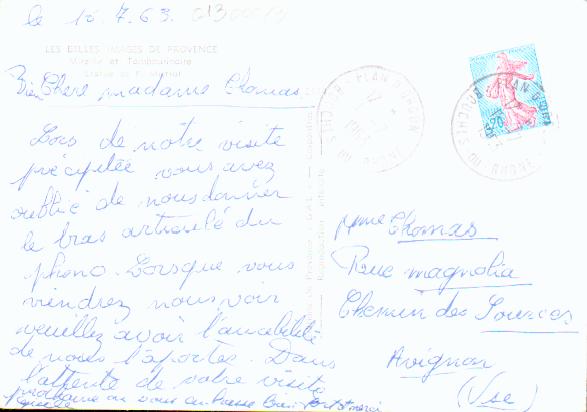 le 16.7.63.
LES BELLES IMAGES DE PROVENCE
Mireille et Tambourinaire
Bien Chere madame Chomas.
Lors de nôtre visite
précipitée vous avez
oublié de nous donner
le bras articulé du
pheno. Lorsque vous
viendrez nous voir
veuillez avoir l'amabilité
de nous l'aportes. Dans
l'attente de votre visite
prochaine on vous embrasse bien fort et merci
PLAN D'ORGON
BOUCHES DU RHONE
17
0,20
PLAN D'ORGON
BOUCHES DU RHONE
Mme Chomas
Rue magnolia
Chemin des Sources
Avignon
(Vse)